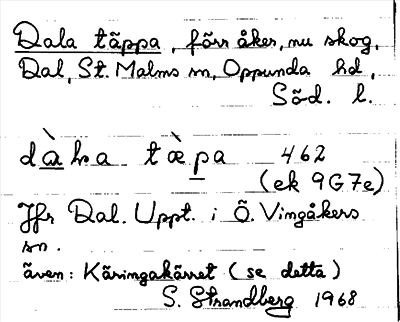 Dala täppa, förr åker, nu skog.
Dal, St. Malms sn, Oppunda hd,
Söd. l.
dàla tæ̀pa 462
(ek 9G7e)
Jfr Dal. Uppt. i Ö. Vingåkers
sn.
även: Käringakärret (se detta)
S. Strandberg 1968